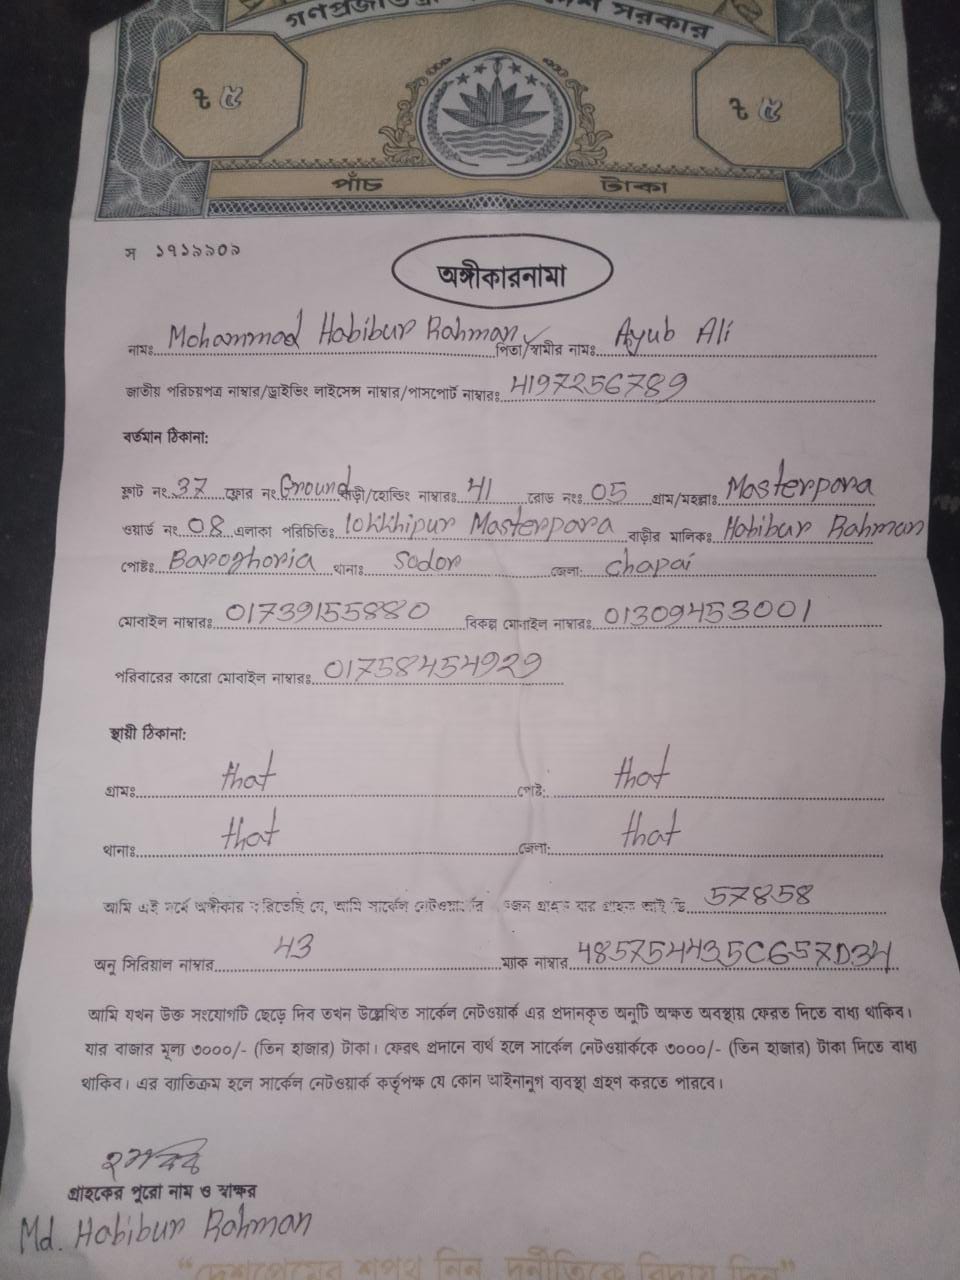 গণপ্রজাতন্ত্রী বাংলাদেশ সরকার
৳ ৫ ৳ ৫
পাঁচ টাকা
স ১৭১৯৯০৯
অঙ্গীকারনামা
নামঃ Mohammad Habibur Rahman পিতা/স্বামীর নামঃ Ayub Ali
জাতীয় পরিচয়পত্র নাম্বার/ড্রাইভিং লাইসেন্স নাম্বার/পাসপোর্ট নাম্বারঃ 4197256789
বর্তমান ঠিকানা:
ফ্লাট নং 37 ফ্লোর নং Ground বাড়ী/হোল্ডিং নাম্বারঃ 41 রোড নংঃ 05 গ্রাম/মহল্লাঃ Masterpara
ওয়ার্ড নং 08 এলাকা পরিচিতিঃ lokkhipur Masterpara বাড়ীর মালিকঃ Habibur Rahman
পোষ্টঃ Baroghoria থানাঃ Sador জেলাঃ Chapai
মোবাইল নাম্বারঃ 01739155880 বিকল্প মোবাইল নাম্বারঃ 01309453001
পরিবারের কারো মোবাইল নাম্বারঃ 01758454929
স্থায়ী ঠিকানা:
গ্রামঃ that পোষ্ট: that
থানাঃ that জেলা: that
আমি এই মর্মে অঙ্গীকার করিতেছি যে, আমি সার্কেল নেটওয়ার্কের একজন গ্রাহক যার গ্রাহক আই ডি 57858
অনু সিরিয়াল নাম্বার 43 ম্যাক নাম্বার 485754435C657D34
আমি যখন উক্ত সংযোগটি ছেড়ে দিব তখন উল্লেখিত সার্কেল নেটওয়ার্ক এর প্রদানকৃত অনুটি অক্ষত অবস্থায় ফেরত দিতে বাধ্য থাকিব।
যার বাজার মূল্য ৩০০০/- (তিন হাজার) টাকা। ফেরৎ প্রদানে ব্যর্থ হলে সার্কেল নেটওয়ার্ককে ৩০০০/- (তিন হাজার) টাকা দিতে বাধ্য
থাকিব। এর ব্যতিক্রম হলে সার্কেল নেটওয়ার্ক কর্তৃপক্ষ যে কোন আইনানুগ ব্যবস্থা গ্রহণ করতে পারবে।
গ্রাহকের পুরো নাম ও স্বাক্ষর
Md. Habibur Rahman
"দেশপ্রেমের শপথ নিন, দুর্নীতিকে বিদায় দিন"